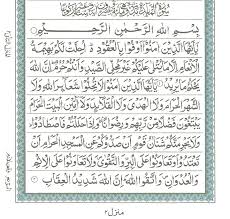 بِسْمِ اللّٰهِ الرَّحْمٰنِ الرَّحِيْمِ
يٰۤاَيُّهَا الَّذِيْنَ اٰمَنُوْۤا اَوْفُوْا بِالْعُقُوْدِ اُحِلَّتْ لَكُمْ بَهِيْمَةُ
الْاَنْعَامِ اِلَّا مَا يُتْلٰى عَلَيْكُمْ غَيْرَ مُحِلِّى الصَّيْدِ وَاَنْتُمْ حُرُمٌ اِنَّ اللّٰهَ
يَحْكُمُ مَا يُرِيْدُ يٰۤاَيُّهَا الَّذِيْنَ اٰمَنُوْا لَا تُحِلُّوْا شَعَآئِرَ اللّٰهِ وَلَا
الشَّهْرَ الْحَرَامَ وَلَا الْهَدْىَ وَلَا الْقَلَآئِدَ وَلَاۤ آٰمِّيْنَ الْبَيْتَ الْحَرَامَ
يَبْتَغُوْنَ فَضْلًا مِّنْ رَّبِّهِمْ وَرِضْوَانًا وَاِذَا حَلَلْتُمْ فَاصْطَادُوْا
وَلَا يَجْرِمَنَّكُمْ شَنَاٰنُ قَوْمٍ اَنْ صَدُّوْكُمْ عَنِ الْمَسْجِدِ الْحَرَامِ اَنْ
تَعْتَدُوْا وَتَعَاوَنُوْا عَلَى الْبِرِّ وَالتَّقْوٰى وَلَا تَعَاوَنُوْا عَلَى الْاِثْمِ
وَالْعُدْوَانِ وَاتَّقُوا اللّٰهَ اِنَّ اللّٰهَ شَدِيْدُ الْعِقَابِ
منزل ٢